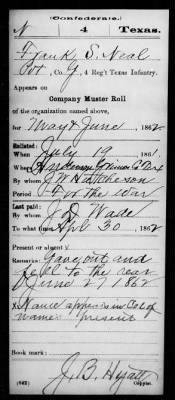 (Confederate.)
N 4 Texas.
Frank S. Neal
Pvt, Co. G, 4 Reg't Texas Infantry.
Appears on
Company Muster Roll
of the organization named above,
for May & June, 1862
Enlisted:
When July 19, 1861.
Where Anderson Grimes Co Tex
By whom J. W. Hutcheson
Period For the war
Last paid:
By whom J. D. Wade
To what time Apl 30, 1862
Present or absent
Remarks: Gave out and
fell to the rear
June 27 1862
x Name appears in Col of
names present
Book mark:
J. B. Hyatt
(642) Copyist.